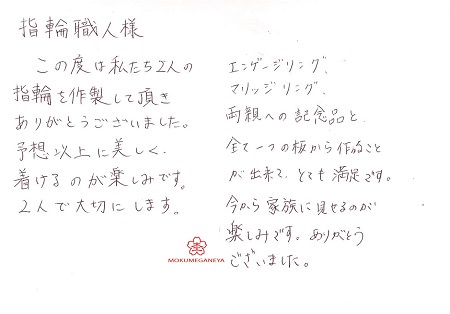 指輪職人様
この度は私たち2人の
指輪を作製して頂き
ありがとうございました。
予想以上に美しく、
着けるのが楽しみです。
2人で大切にします。
エンゲージリング、
マリッジリング、
両親への記念品と、
全て一つの板から作ること
が出来て、とても満足です。
今から家族に見せるのが
楽しみです。ありがとう
ございました。
MOKUMEGANEYA